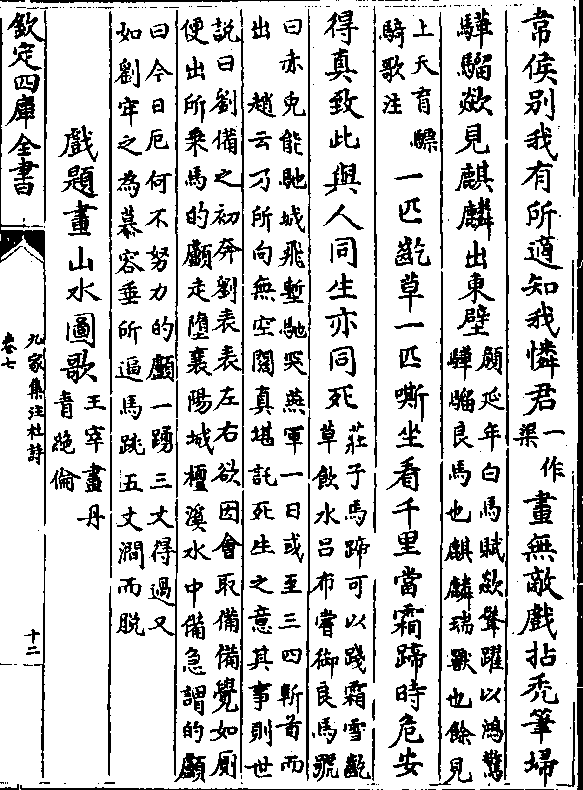 韋侯别我有所適知我憐君一作渠畫無敵戲拈禿筆埽
驊騮歘見麒麟出東壁顔延年白馬賦歘聳躍以鴻驚
驊騮良馬也麒麟瑞獸也餘見
上天育驃
騎歌注一匹齕草一匹嘶坐看千里當霜蹄時危安
得真致此與人同生亦同死莊子馬蹄可以踐霜雪齕
草飲水吕布嘗御良馬號
曰赤兔能馳城飛塹馳突燕軍一日或至三四斬首而
出 趙云乃所向無空闊真堪託死生之意其事則世
說曰劉備之初奔劉表表左右欲因會取備備覺如厠
便出所乘馬的顱走墮襄陽城檀溪水中備急謂的顱
曰今日厄何不努力的顱一踴三丈得過又
如劉牢之為慕容垂所逼馬跳五丈澗而脱
戲題畫山水圖歌王宰畫丹
青絶倫
欽定四庫全書
九家集注杜詩
卷七
十二